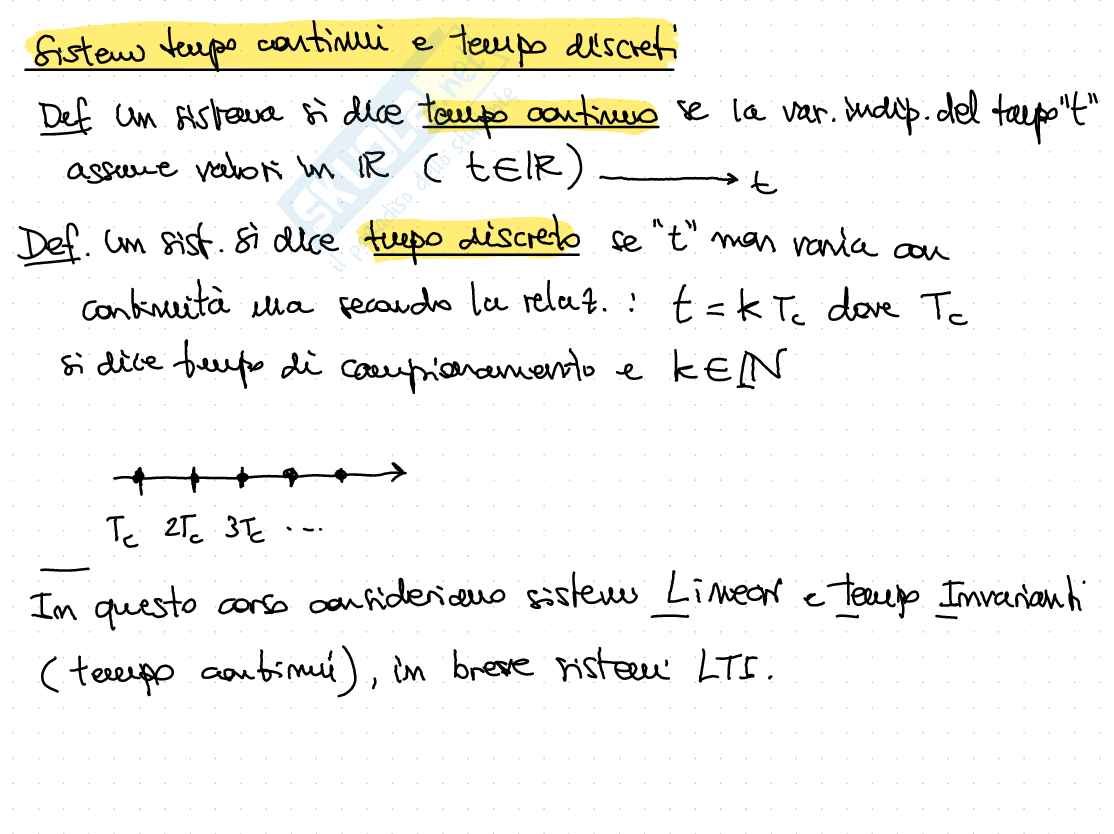 Sistemi tempo continui e tempo discreti
Def Un sistema si dice tempo continuo se la var. indip. del tempo "t"
assume valori in ℝ ( t∈ℝ) ⟶ t
Def. Un sist. si dice tempo discreto se "t" non varia con
continuità ma secondo la relaz. : t = k Tc dove Tc
si dice tempo di campionamento e k∈ℕ
Tc 2Tc 3Tc ...
In questo corso consideriamo sistemi Lineari e Tempo Invarianti
(tempo continui), in breve sistemi LTI.
SKUOLA.net